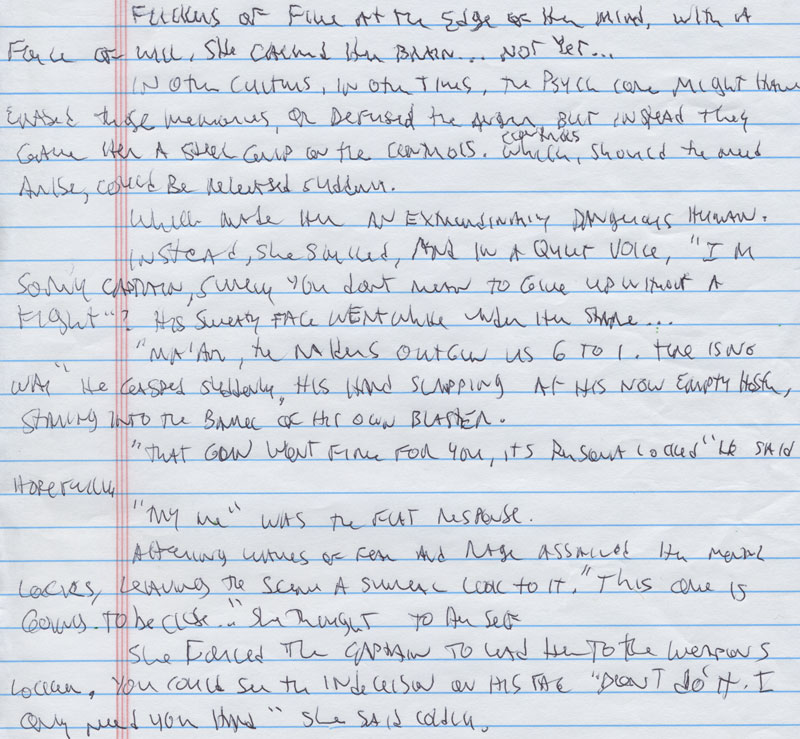 Flickers of Fire At the Edge of Her mind, with A
Force of will, She calmed Her BRAIN... NOT Yet...
IN Other Cultures, IN Other Times, the Psych core Might Have
ERASED those memories, OR Defused the Anger, BUT INSTEAD They
Gave Her A Steel Grip on the CONTROLS.
controls
Which, should the need
Arise, could Be Released suddenly.
Which made Her AN EXTRAORDINARILY DANGEROUS HUMAN.
INSTEAD, She Smiled, AND IN A Quiet VOICE, "I'M
Sorry CAPTAIN, surely You don't mean to Give UP Without A
FIGHT"? His Sweaty FACE WENT White under Her STARE...
"MA'AM, the RAIDERS OutGun us 6 TO 1. There IS NO
WAY" He GASPED suddenly, HIS HAND SLAPPING AT HIS NOW EMPTY Holster,
STARING INTO The BARREL OF HIS OWN BLASTER.
"THAT GUN WON'T Fire FOR YOU, ITS Personal Locked" He SAID
HOPEFULLY
"Try me" WAS the FLAT RESPONSE.
Alternating waves of Fear And RAGE ASSAILED Her Mental
Locks, Leaving The Scene A Surreal LOOK to IT. "This one IS
GOING TO be close..." She Thought TO Her Self
She Forced The CAPTAIN TO Lead Her TO the WEAPONS
Locker. You could see the INDECISION on HIS FACE "DON'T do IT. I
Only need your HAND" She SAID coldly.